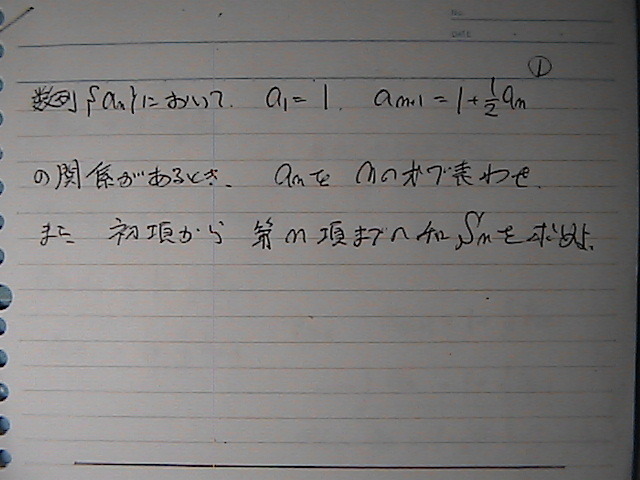 NO.
DATE
①
数列{an}において. a1=1. an+1=1+1/2an
の関係があるとき、 anを nの式で表わせ.
また 初項から 第n項までの和Snを求めよ.